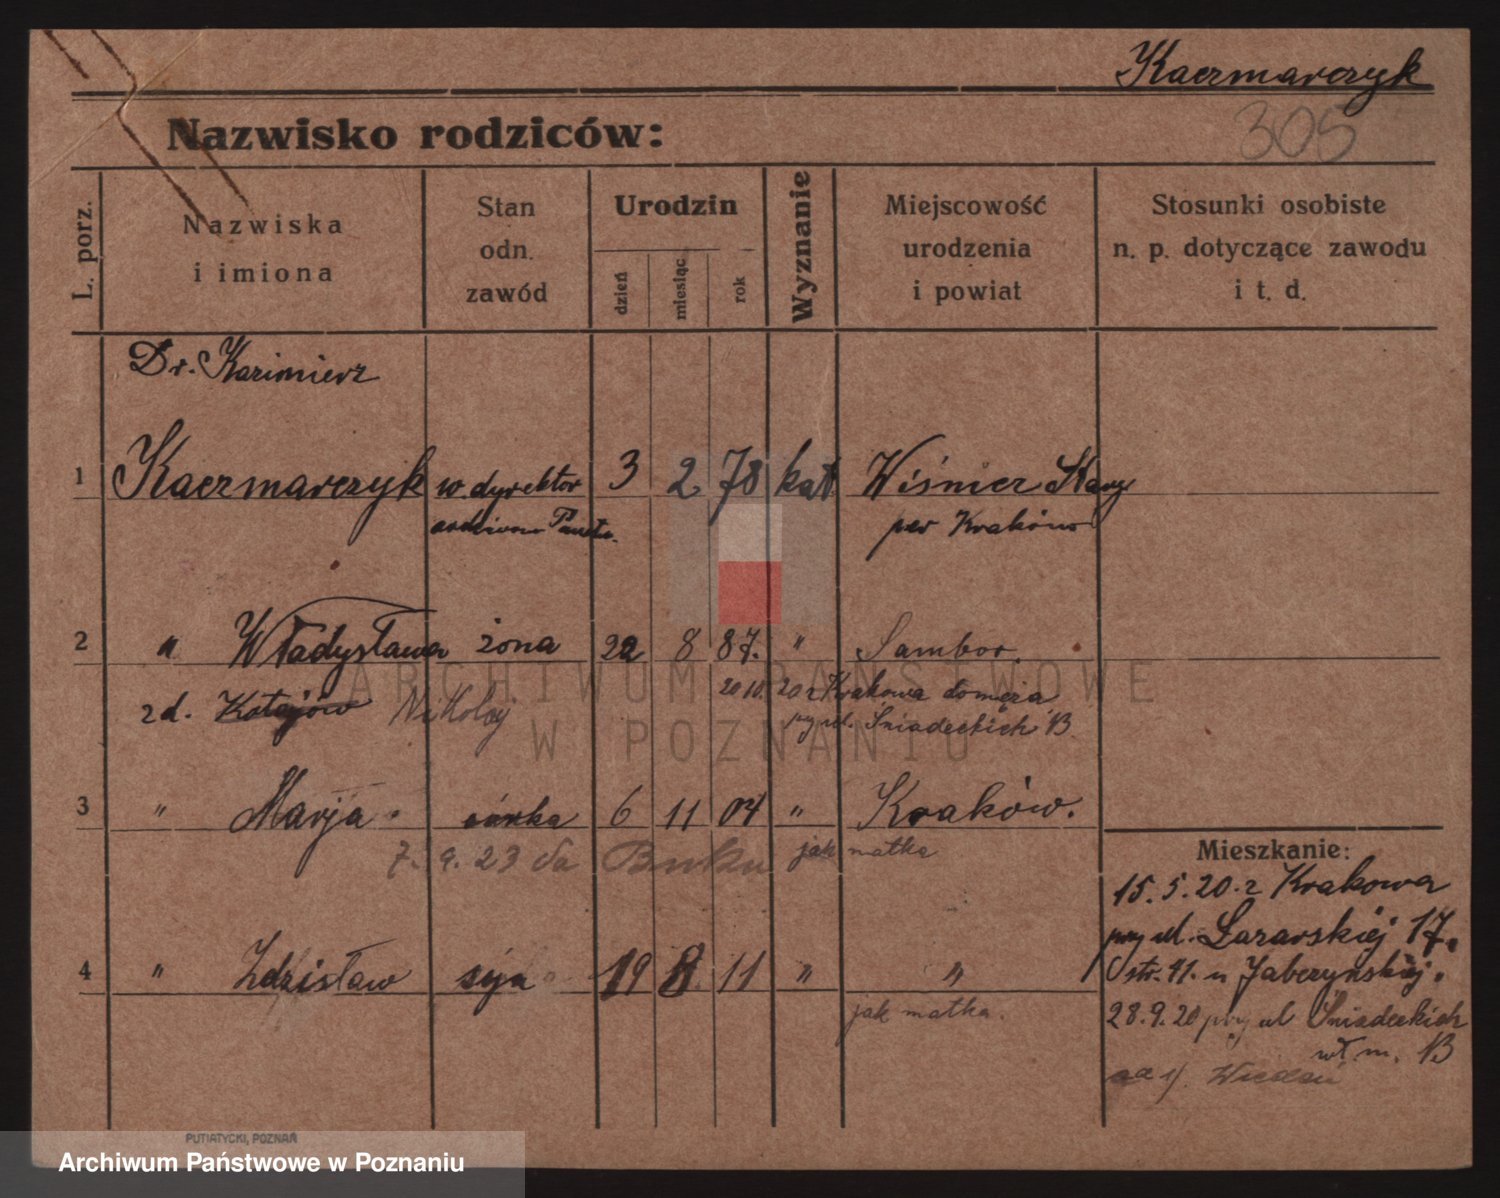 Kaczmarczyk
305
Nazwisko rodziców:
L. porz.
Nazwiska
i imiona
Stan
odn.
zawód
Urodzin
dzień
miesiąc
rok
Wyznanie
Miejscowość
urodzenia
i powiat
Stosunki osobiste
n. p. dotyczące zawodu
i t. d.
Dr. Kazimierz
1 Kaczmarczyk w. dyrektor 3 2 78 kat. Wiśnicz Stary
archiwum Państw. pow Kraków
2 " Władysława żona 22 8 87. " Sambor.
zd. Kołajów Nikołaj 20 10. 20 z Krakowa do męża
przy ul. Śniadeckich 1B
3 " Marja. córka 6 11 04 " Kraków.
7. 9. 23 do Buku jak matka
4 " Zdzisław syn 19 8 11 " "
jak matka.
Mieszkanie:
15. 5. 20. z Krakowa
przy ul. Łazarskiej 17.
str. 11. u Jabczyńskiej.
28. 9. 20 przy ul Śniadeckich
wł. m. 1B
ARCHIWUM PAŃSTWOWE
W POZNANIU
PUTIATYCKI, POZNAŃ
Archiwum Państwowe w Poznaniu